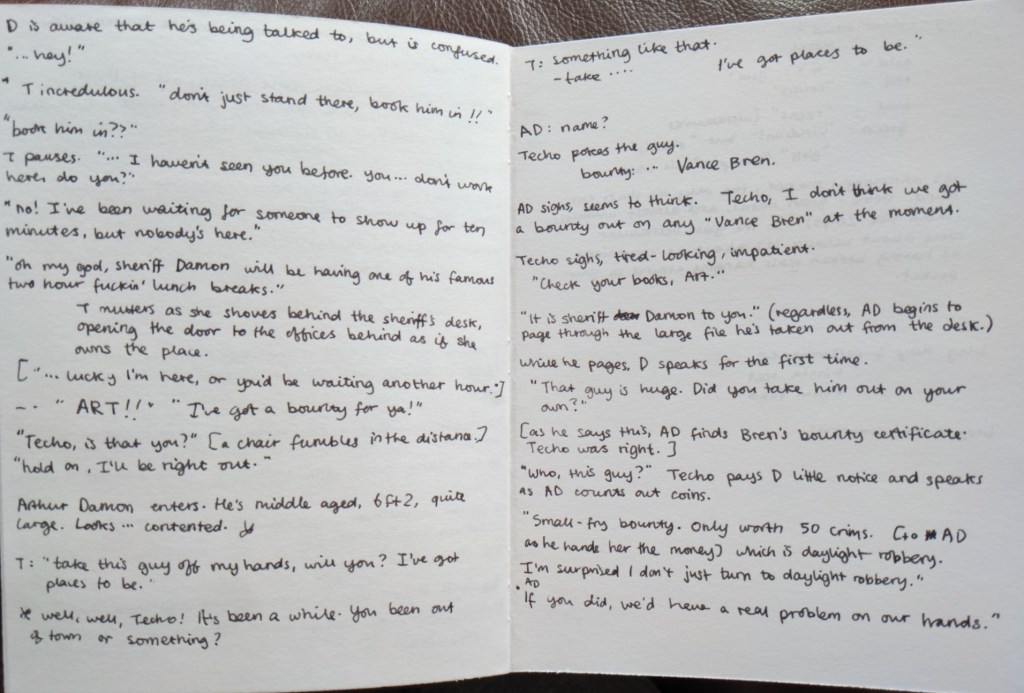 D is aware that he's being talked to, but is confused.
"... hey!"
" T incredulous. "don't just stand there, book him in!!"
"book him in??"
T pauses. "... I haven't seen you before. you... don't work
here, do you?"
"no! I've been waiting for someone to show up for ten
minutes, but nobody's here."
"oh my god, sheriff Damon will be having one of his famous
two hour fuckin' lunch breaks."
T mutters as she shoves behind the sheriff's desk,
opening the door to the offices behind as if she
owns the place.
["... lucky I'm here, or you'd be waiting another hour."]
-. " ART!!" "I've got a bounty for ya!"
"Techo, is that you?" [a chair fumbles in the distance.]
"hold on, I'll be right out."
Arthur Damon enters. He's middle aged, 6ft2, quite
large. Looks ... contented.
T: "take this guy off my hands, will you? I've got
places to be."
* well, well, Techo! It's been a while. You been out
of town or something?
T: something like that.
- take .... I've got places to be."
AD: name?
Techo pokes the guy.
bounty: ... Vance Bren.
AD sighs, seems to think. Techo, I don't think we got
a bounty out on any "Vance Bren" at the moment.
Techo sighs, tired-looking, impatient.
"Check your books, Art."
"It is sheriff Damon to you." (regardless, AD begins to
page through the large file he's taken out from the desk.)
while he pages, D speaks for the first time.
"That guy is huge. Did you take him out on your
own?"
[as he says this, AD finds Bren's bounty certificate.
Techo was right.]
"Who, this guy?" Techo pays D little notice and speaks
as AD counts out coins.
"Small-fry bounty. Only worth 50 crims. [to AD
as he hands her the money] which is daylight robbery.
I'm surprised I don't just turn to daylight robbery."
AD
"If you did, we'd have a real problem on our hands."